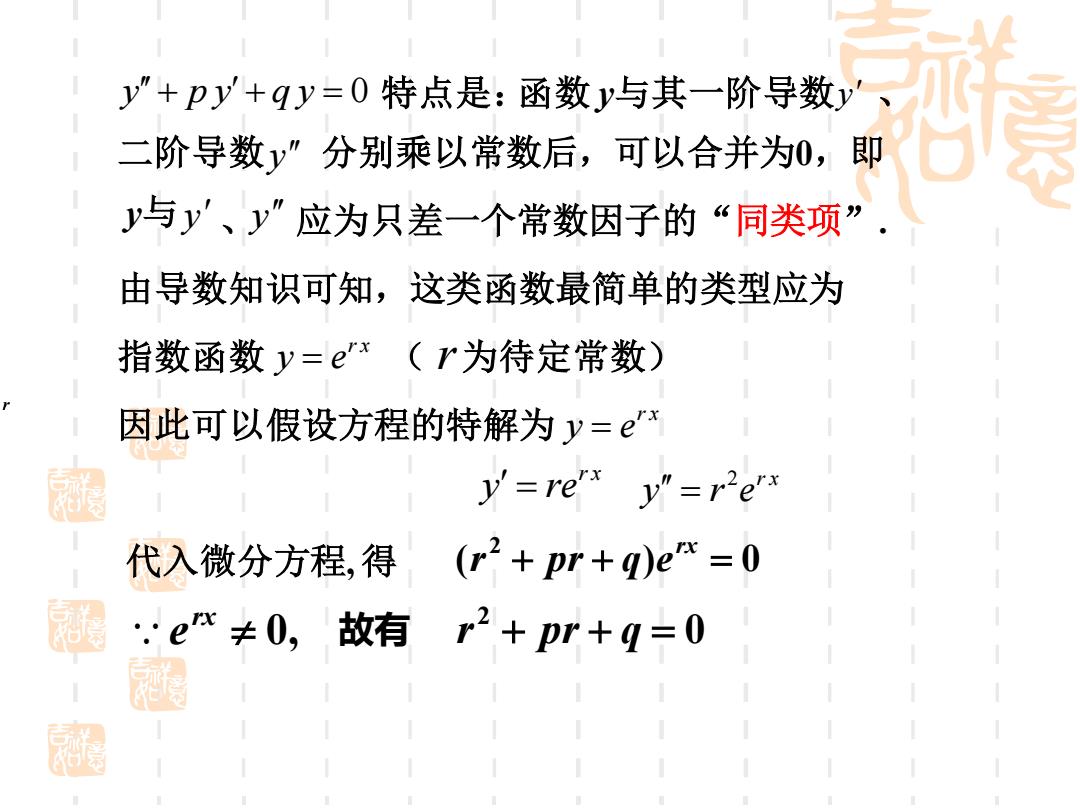 y″ + p y′ + q y = 0 特点是：函数 y与其一阶导数y′ 、
二阶导数y″ 分别乘以常数后，可以合并为0，即
y与 y′ 、y″ 应为只差一个常数因子的“同类项”.
由导数知识可知，这类函数最简单的类型应为
指数函数 y = e^{r x} （ r 为待定常数）
r
因此可以假设方程的特解为 y = e^{r x}
y′ = re^{r x} y″ = r²e^{r x}
代入微分方程, 得 (r² + pr + q)e^{rx} = 0
∵ e^{rx} ≠ 0, 故有 r² + pr + q = 0
吉祥如意
吉祥如意
吉祥如意
吉祥如意
吉祥如意
吉祥如意
吉祥如意